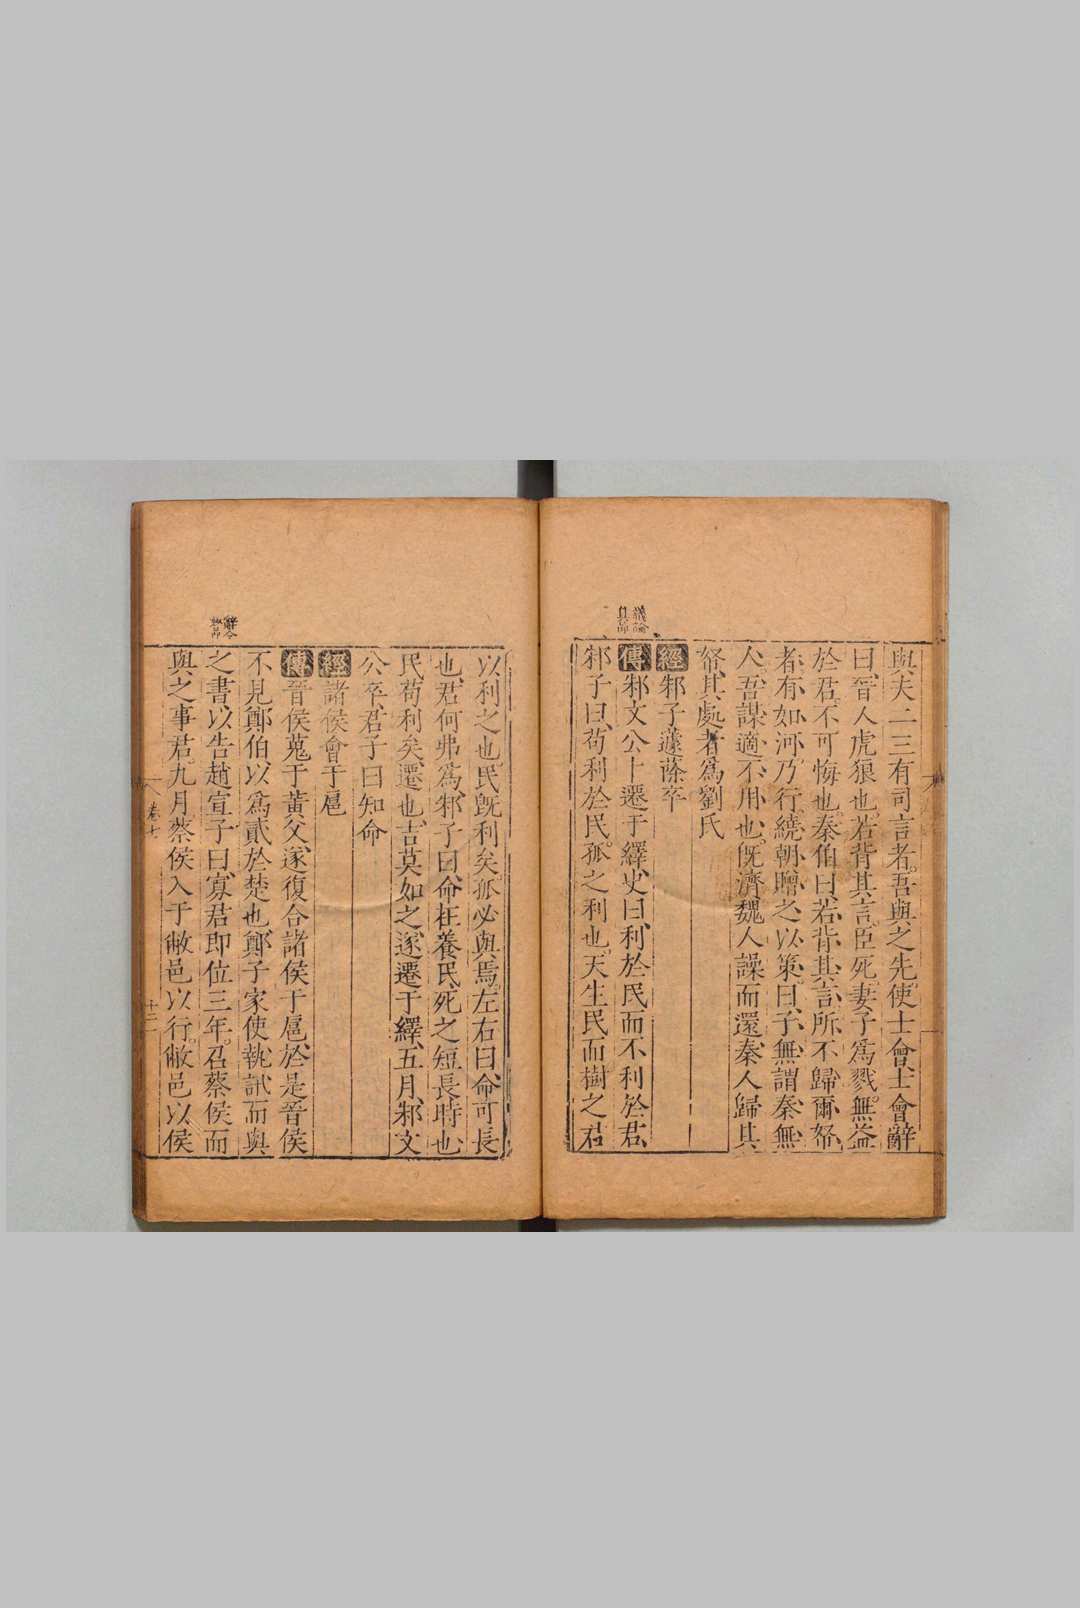 與夫二三有司言者。吾與之先。使士會。士會辭
曰、晉人虎狼也。若背其言、臣死、妻子爲戮。無益
於君、不可悔也。秦伯曰、若背其言、所不歸爾帑
者、有如河。乃行、繞朝贈之以策。曰、子無謂秦無
人、吾謀適不用也。旣濟、魏人譟而還、秦人歸其
帑、其處者爲劉氏
經邾子蘧蒢卒
議論
具品
傳邾文公卜遷于繹、史曰、利於民而不利於君、
邾子曰、苟利於民。孤之利也。天生民而樹之君
以利之也、民旣利矣。孤必與焉。左右曰、命可長
也、君何弗爲、邾子曰、命在養民、死之短長、時也
民苟利矣、遷也、吉莫如之、遂遷于繹、五月、邾文
公卒、君子曰知命
經諸侯會于扈
傳晉侯蒐于黃父、遂復合諸侯于扈、於是晉侯
不見鄭伯、以爲貳於楚也、鄭子家使執訊而與
辭令
之書、以告趙宣子曰、寡君卽位三年。召蔡侯而
與之事君。九月蔡侯入于敝邑以行。敝邑以侯
卷七
十三